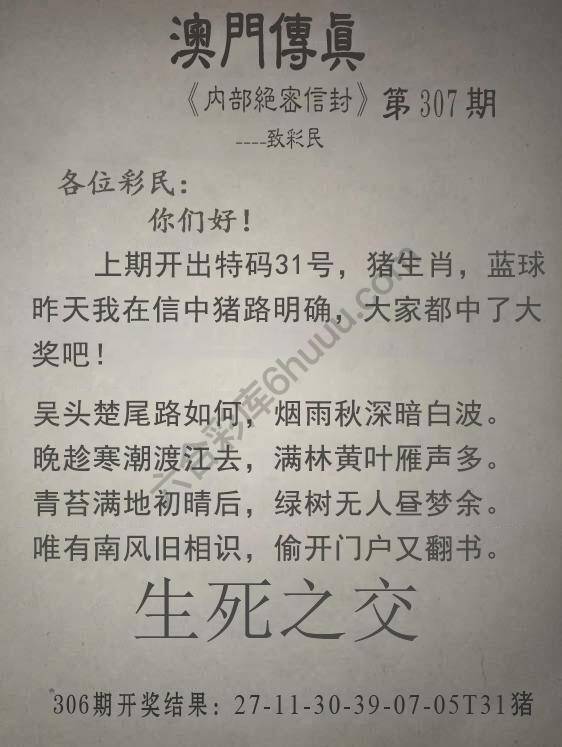 澳門傳眞
《内部絕密信封》第307期
----致彩民
各位彩民：
你们好！
上期开出特码31号，猪生肖，蓝球
昨天我在信中猪路明确，大家都中了大
奖吧！
吴头楚尾路如何，烟雨秋深暗白波。
晚趁寒潮渡江去，满林黄叶雁声多。
青苔满地初晴后，绿树无人昼梦余。
唯有南风旧相识，偷开门户又翻书。
生死之交
306期开奖结果：27-11-30-39-07-05T31猪
六合彩库6huuu.com